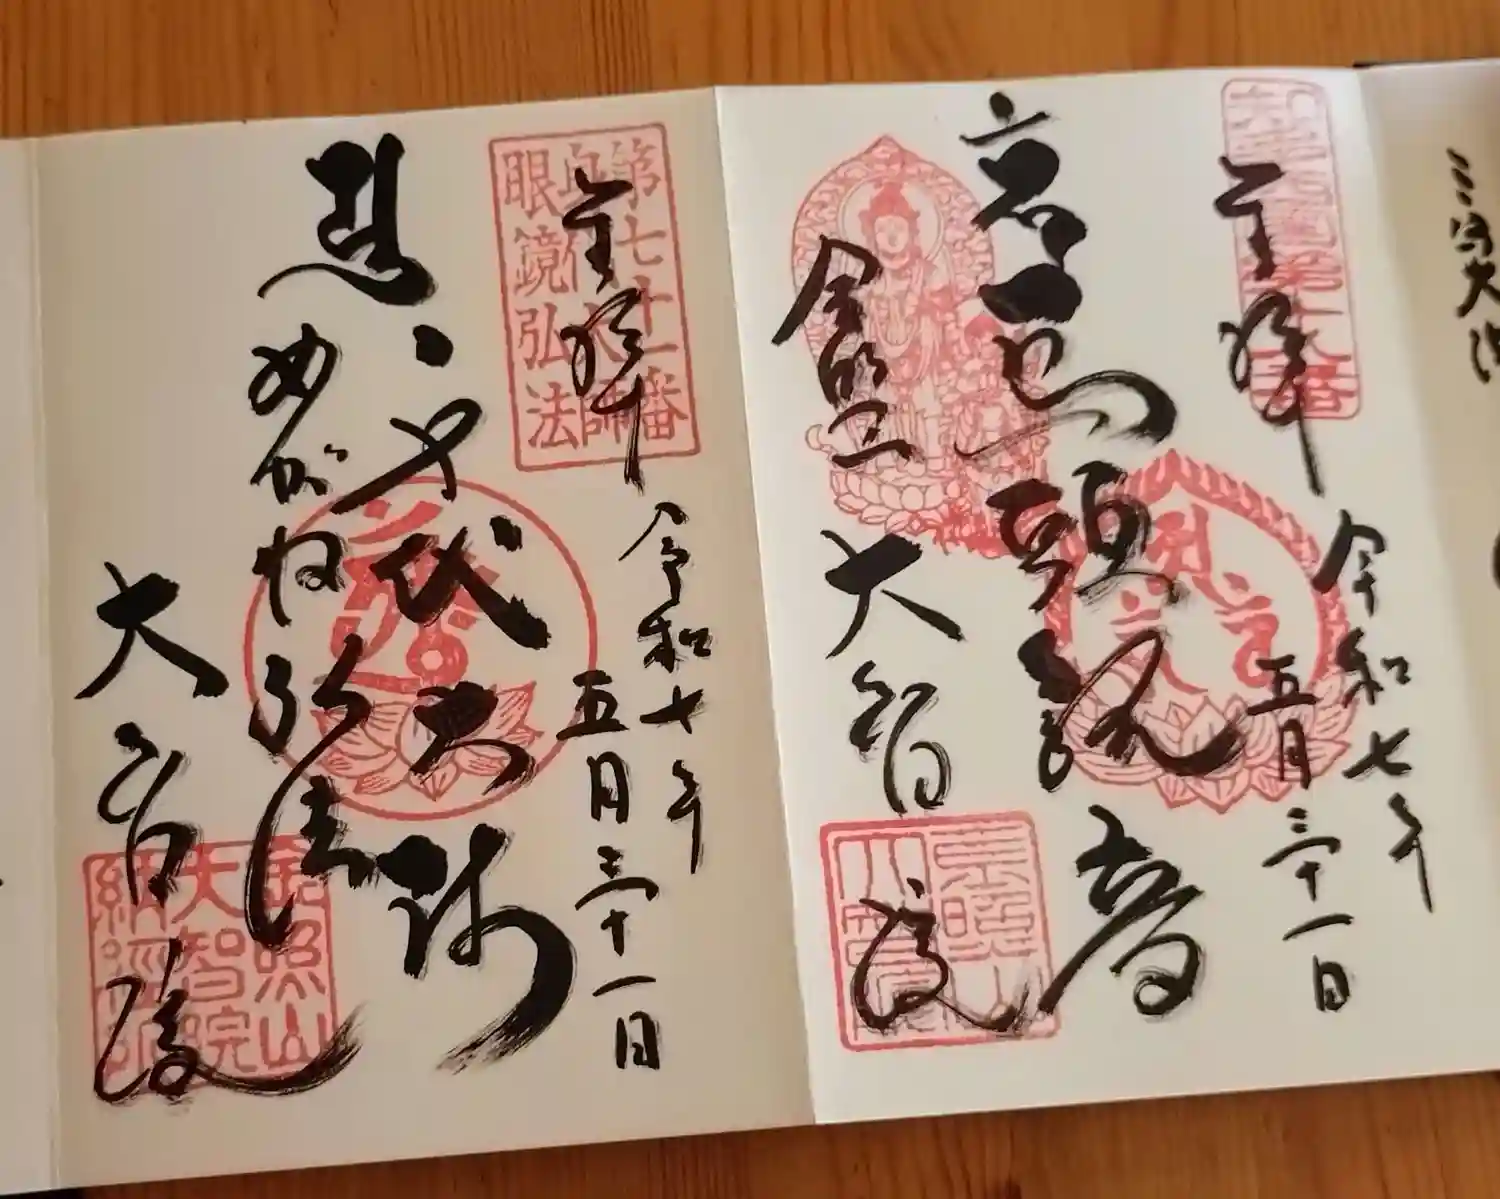 奉拝
令和七年
五月三十一日
馬頭観音
金照山
大智院
第七十一番
身代大師
眼鏡弘法
奉拝
令和七年
五月三十一日
身代大師
めがね弘法
大智院
金照山
大智院
納経